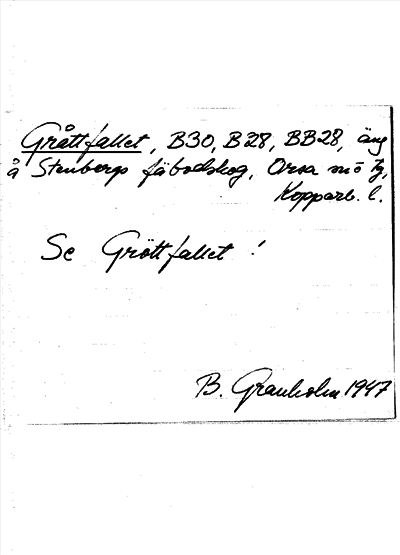 Gråttfallet, B30, B28, BB28, äng
å Stenbergs fäbodskog, Orsa snö tg,
Kopparb. l.
Se Gröttfallet!
B. Granholm 1947